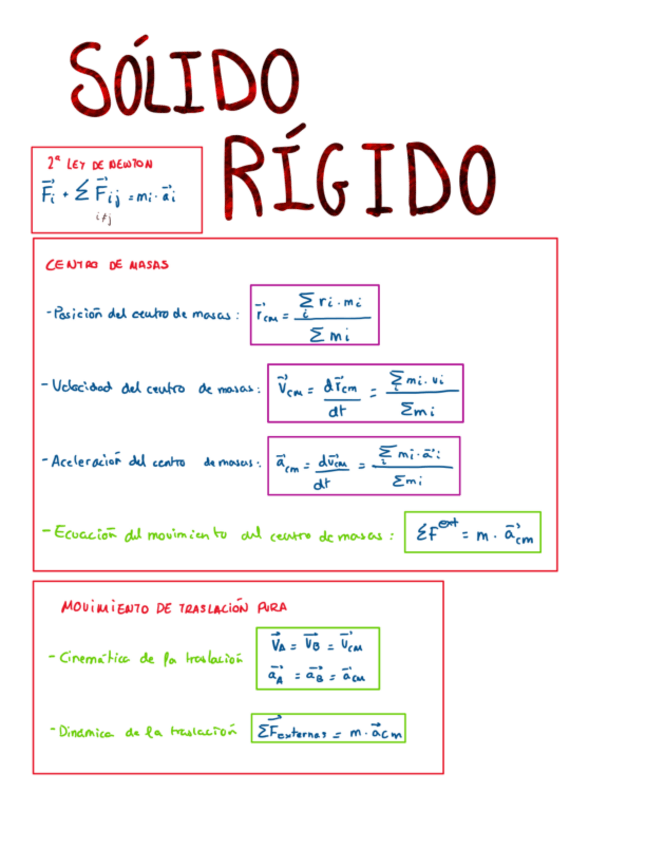 SÓLIDO
RÍGIDO
2ª LEY DE NEWTON
F⃗i + Σ F⃗ij = mi · a⃗i
i≠j
CENTRO DE MASAS
- Posición del centro de masas : r⃗cm = Σi ri · mi / Σ mi
- Velocidad del centro de masas : v⃗cm = dr⃗cm / dt = Σi mi · vi / Σmi
- Aceleración del centro de masas : a⃗cm = dv⃗cm / dt = Σi mi · a⃗i / Σmi
- Ecuación del movimiento del centro de masas : ΣF^ext = m · a⃗cm
MOVIMIENTO DE TRASLACIÓN PURA
- Cinemática de la traslación
v⃗A = v⃗B = v⃗CM
a⃗A = a⃗B = a⃗CM
- Dinámica de la traslación ΣF⃗externas = m · a⃗CM